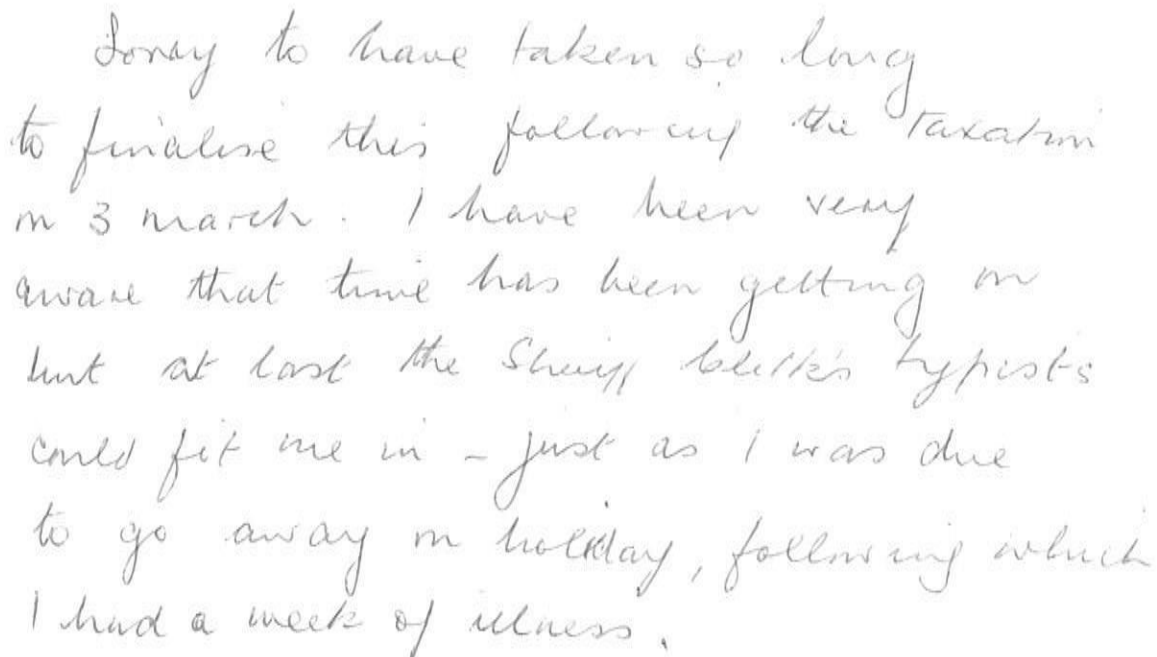 Sorry to have taken so long
to finalise this following the Taxation
on 3 march. I have been very
aware that time has been getting on
but at last the Sheriff Clerk's typists
could fit me in - just as I was due
to go away on holiday, following which
I had a week of illness.